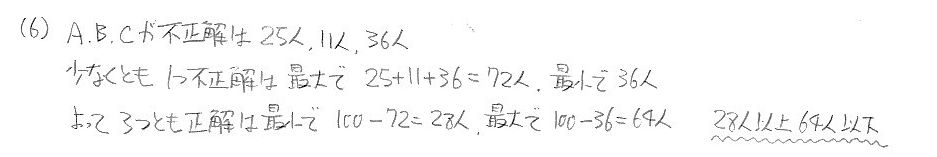 (6) A.B.Cが不正解は 25人, 11人, 36人
少なくとも 1つ不正解は 最大で 25+11+36=72人, 最小で 36人
よって 3つとも正解は最小で 100-72=28人, 最大で 100-36=64人 28人以上64人以下